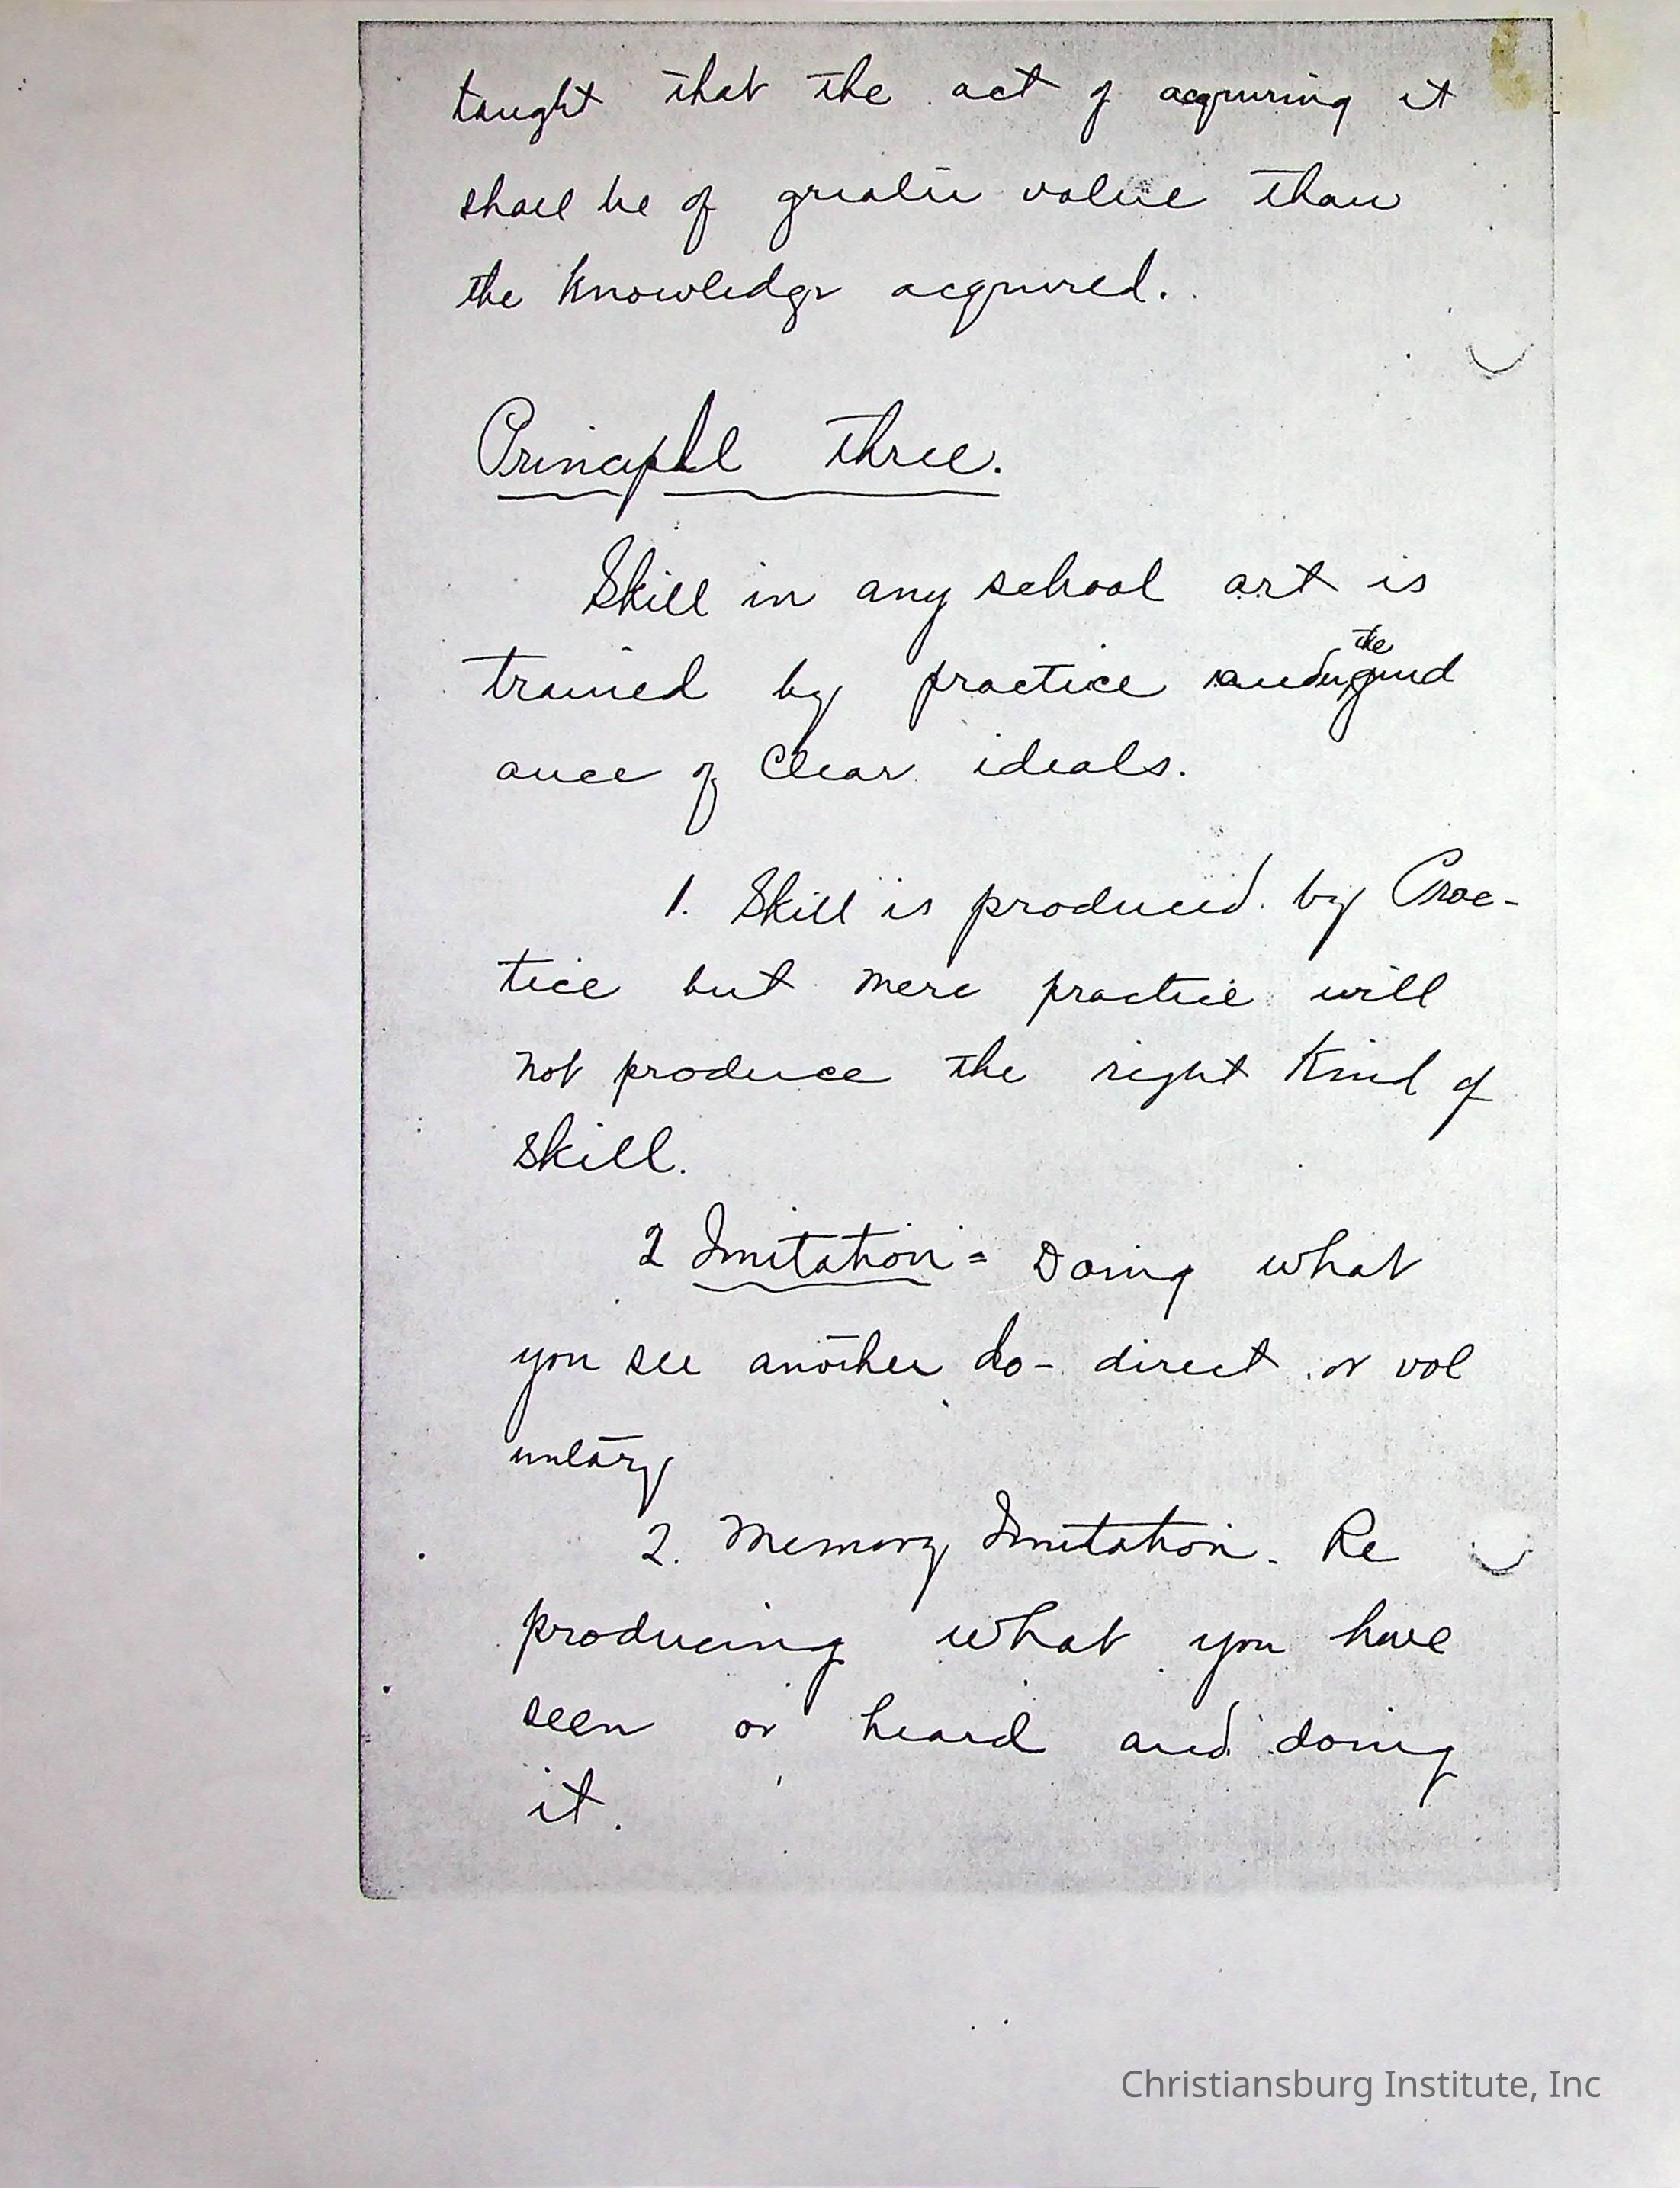 taught that the act of acquiring it
shall be of greater value than
the knowledge acquired.
Principle three.
Skill in any school art is
the
trained by practice under guid
ance of clear ideals.
1. Skill is produced by Prac-
tice but mere practice will
not produce the right kind of
skill.
2 Imitation = Doing what
you see another do - direct or vol
untary
2. Memory Imitation - Re
producing what you have
seen or heard and doing
it.
Christiansburg Institute, Inc